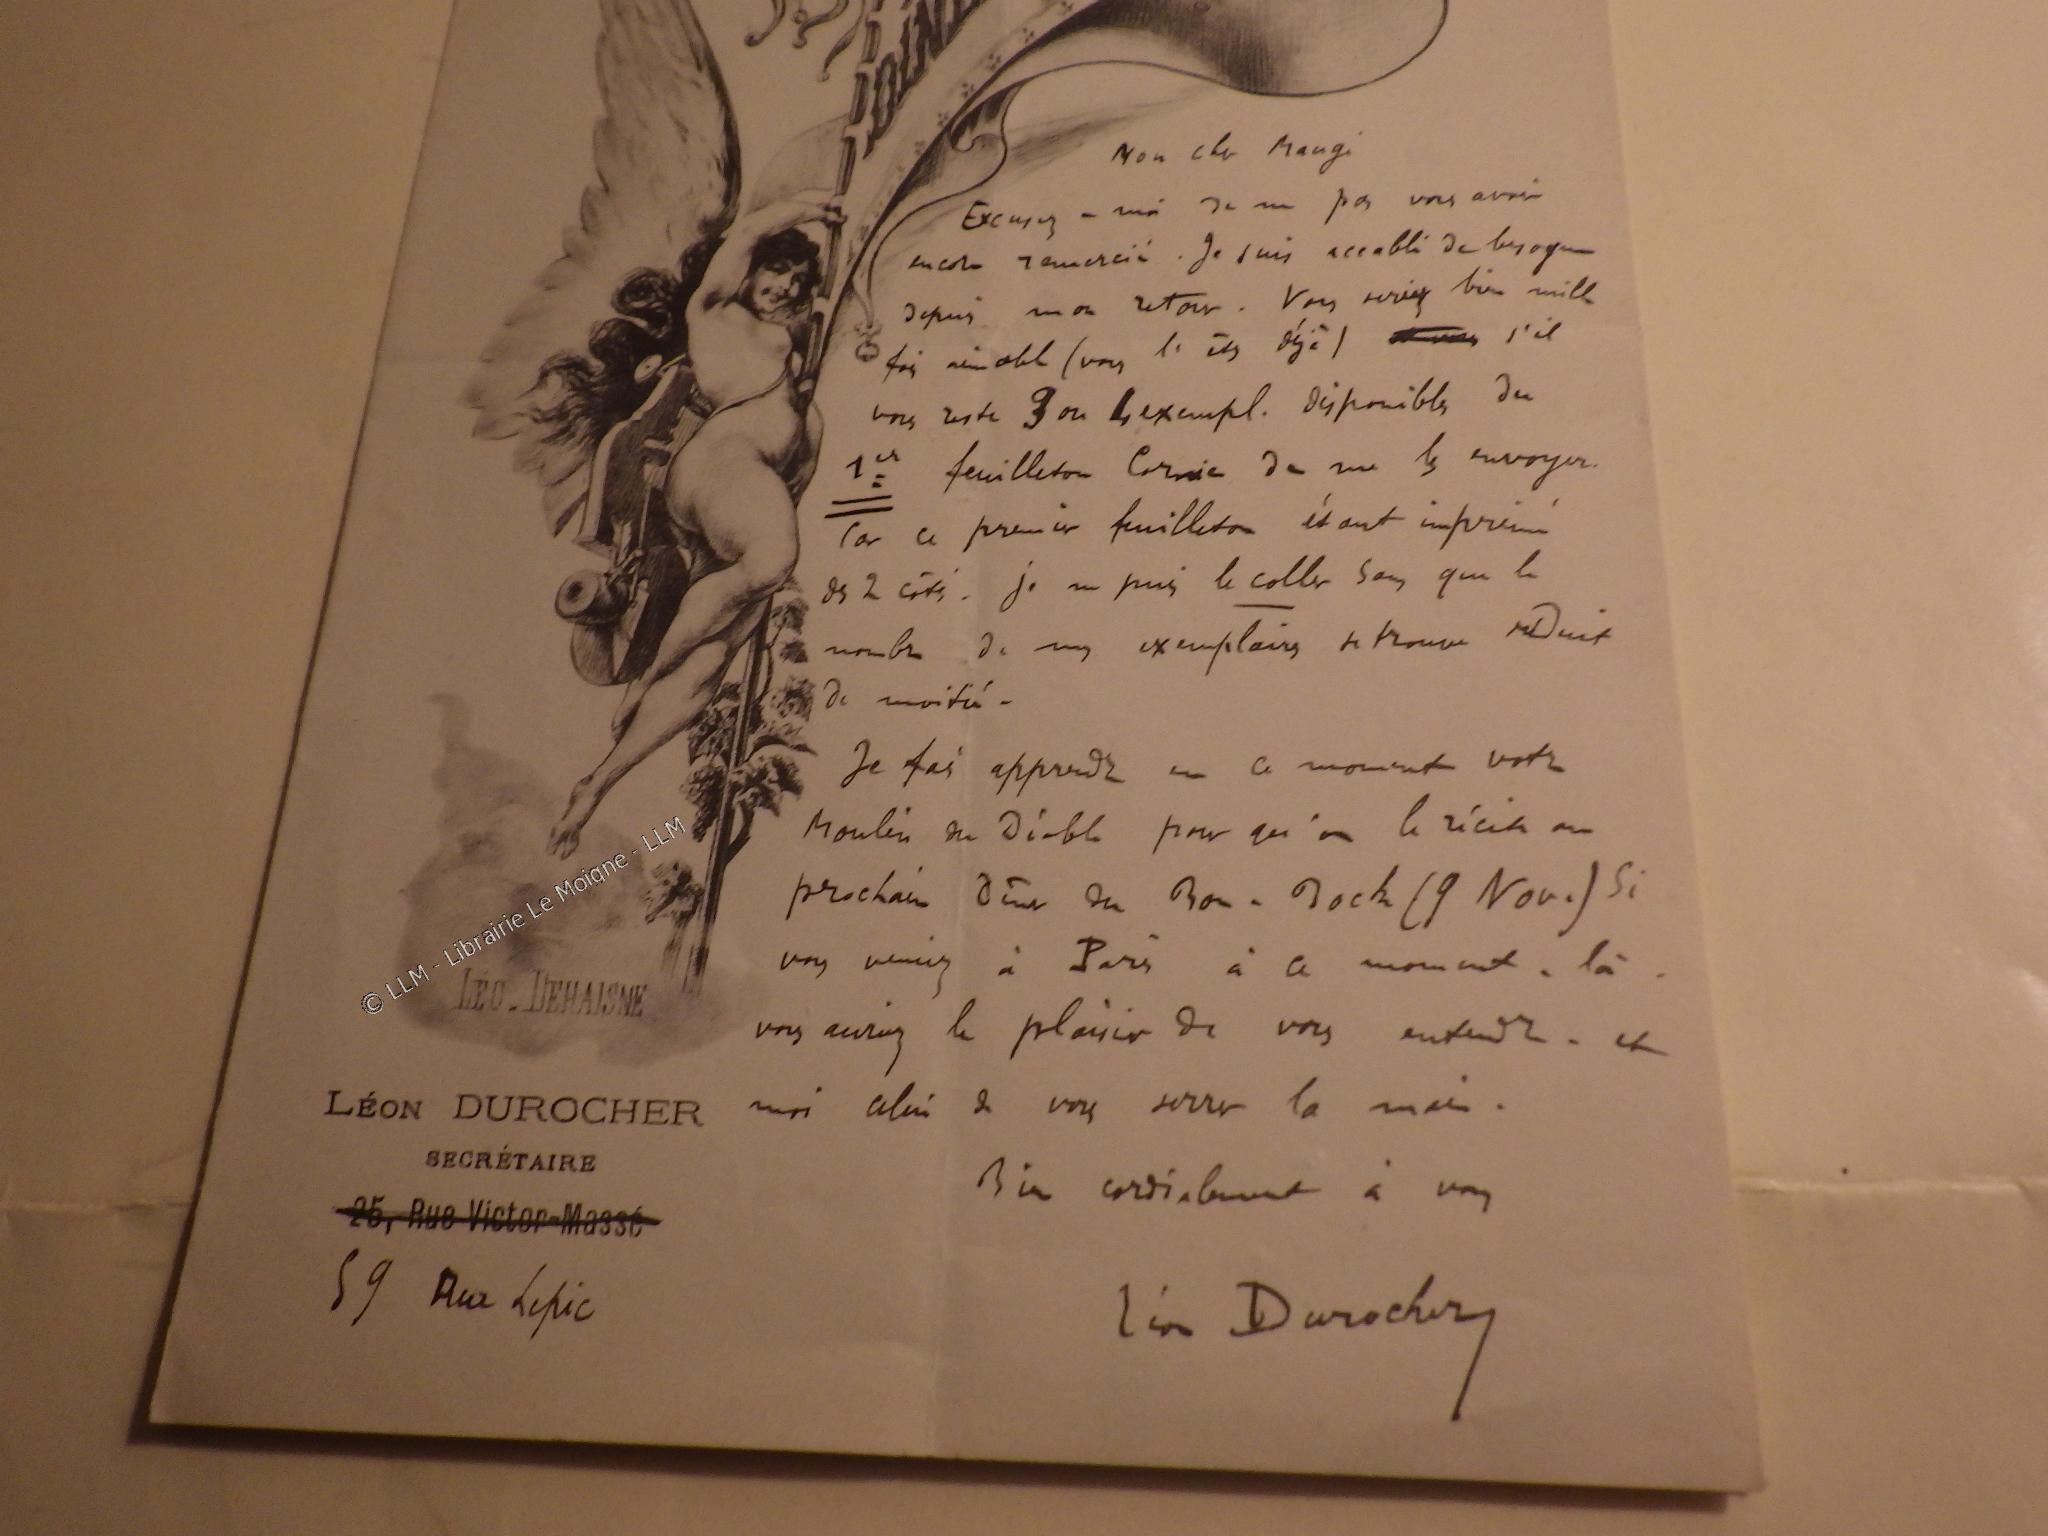 Mon cher Maugi
Excusez-moi de ne pas vous avoir
encore remercié. Je suis accablé de besogne
depuis mon retour. Vous seriez bien mille
fois aimable (vous l' êtes déjà) s'il
vous reste 3 ou 4 exempl. disponibles du
1er feuilleton Cornic de me les envoyer.
Car ce premier feuilleton étant imprimé
des 2 côtés. je ne puis le coller sans que le
nombre de mes exemplaires se trouve réduit
de moitié-
Je fais apprendre en ce moment votre
Moulin du Diable pour qu'on le récite au
prochain dîner du Bon-Bock (9 Nov.) Si
vous veniez à Paris à ce moment-là.
vous auriez le plaisir de vous entendre - et
moi celui de vous serrer la main.
Bien cordialement à vous
Léon Durocher
LÉO-DEHAISNE
LÉON DUROCHER
SECRÉTAIRE
25, Rue Victor-Massé
59 Rue Lepic
© LLM - Librairie Le Moigne - LLM